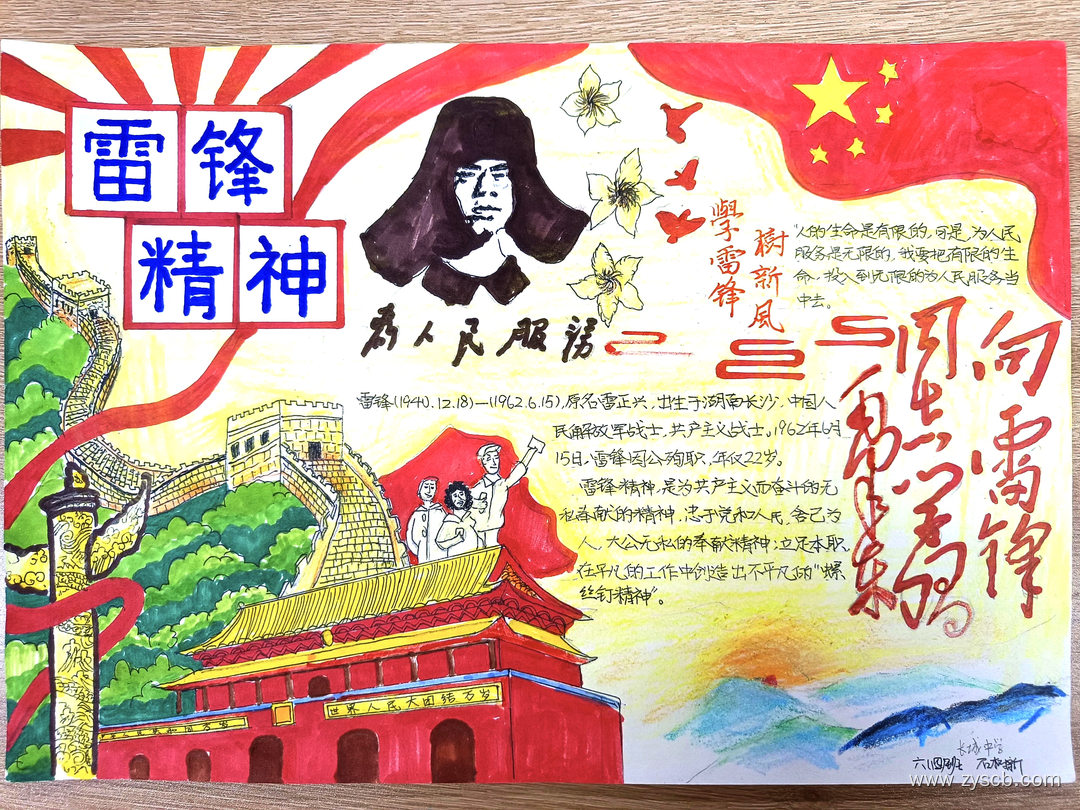 雷锋
精神
为人民服務
學雷锋
樹新風
"人的生命是有限的,可是,为人民
服务是无限的,我要把有限的生
命,投入到无限的为人民服务当
中去。
向雷锋
同志学习
毛泽东
雷锋(1940.12.18)—(1962.6.15),原名雷正兴,出生于湖南长沙,中国人
民解放军战士,共产主义战士。1962年6月
15日,雷锋因公殉职,年仅22岁。
雷锋精神,是为共产主义而奋斗的无
私奉献的精神,忠于党和人民,舍己为
人,大公无私的奉献精神;立足本职,
在平凡的工作中创造出不平凡的"螺
丝钉精神"。
世界人民大团结万岁
长城中学
六(四)班
www.zyscb.com